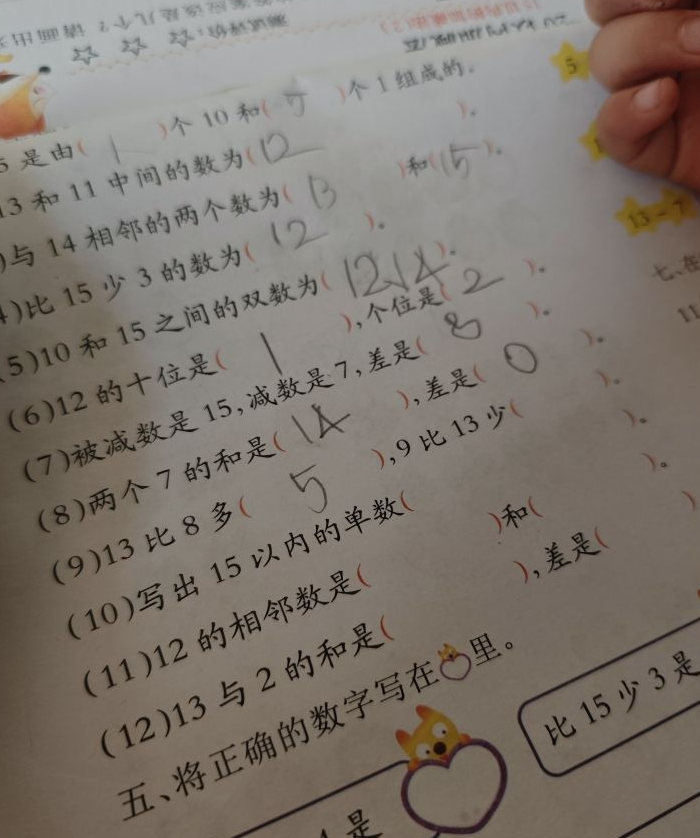 5是由( 1 )个10和( 5 )个1组成的。
13和11中间的数为( 12 )。
)与14相邻的两个数为( 13 )和( 15 )。
4)比15少3的数为( 12 )。
(5)10和15之间的双数为( 12 14 )。
(6)12的十位是( 1 ),个位是( 2 )。
(7)被减数是15,减数是7,差是( 8 )。
(8)两个7的和是( 14 ),差是( 0 )。
(9)13比8多( 5 ),9比13少( )。
(10)写出15以内的单数( )。
(11)12的相邻数是( )和( )。
(12)13与2的和是( ),差是( )
五、将正确的数字写在里。
比15少3是
是
5
13-7
七、在
11